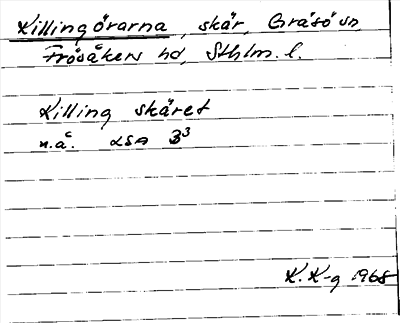 Killingörarna, skär, Gräsö sn,
Frösåkers hd, Sthlm. l.
Killing skäret
n.å. LSA B³
K. K-g 1968